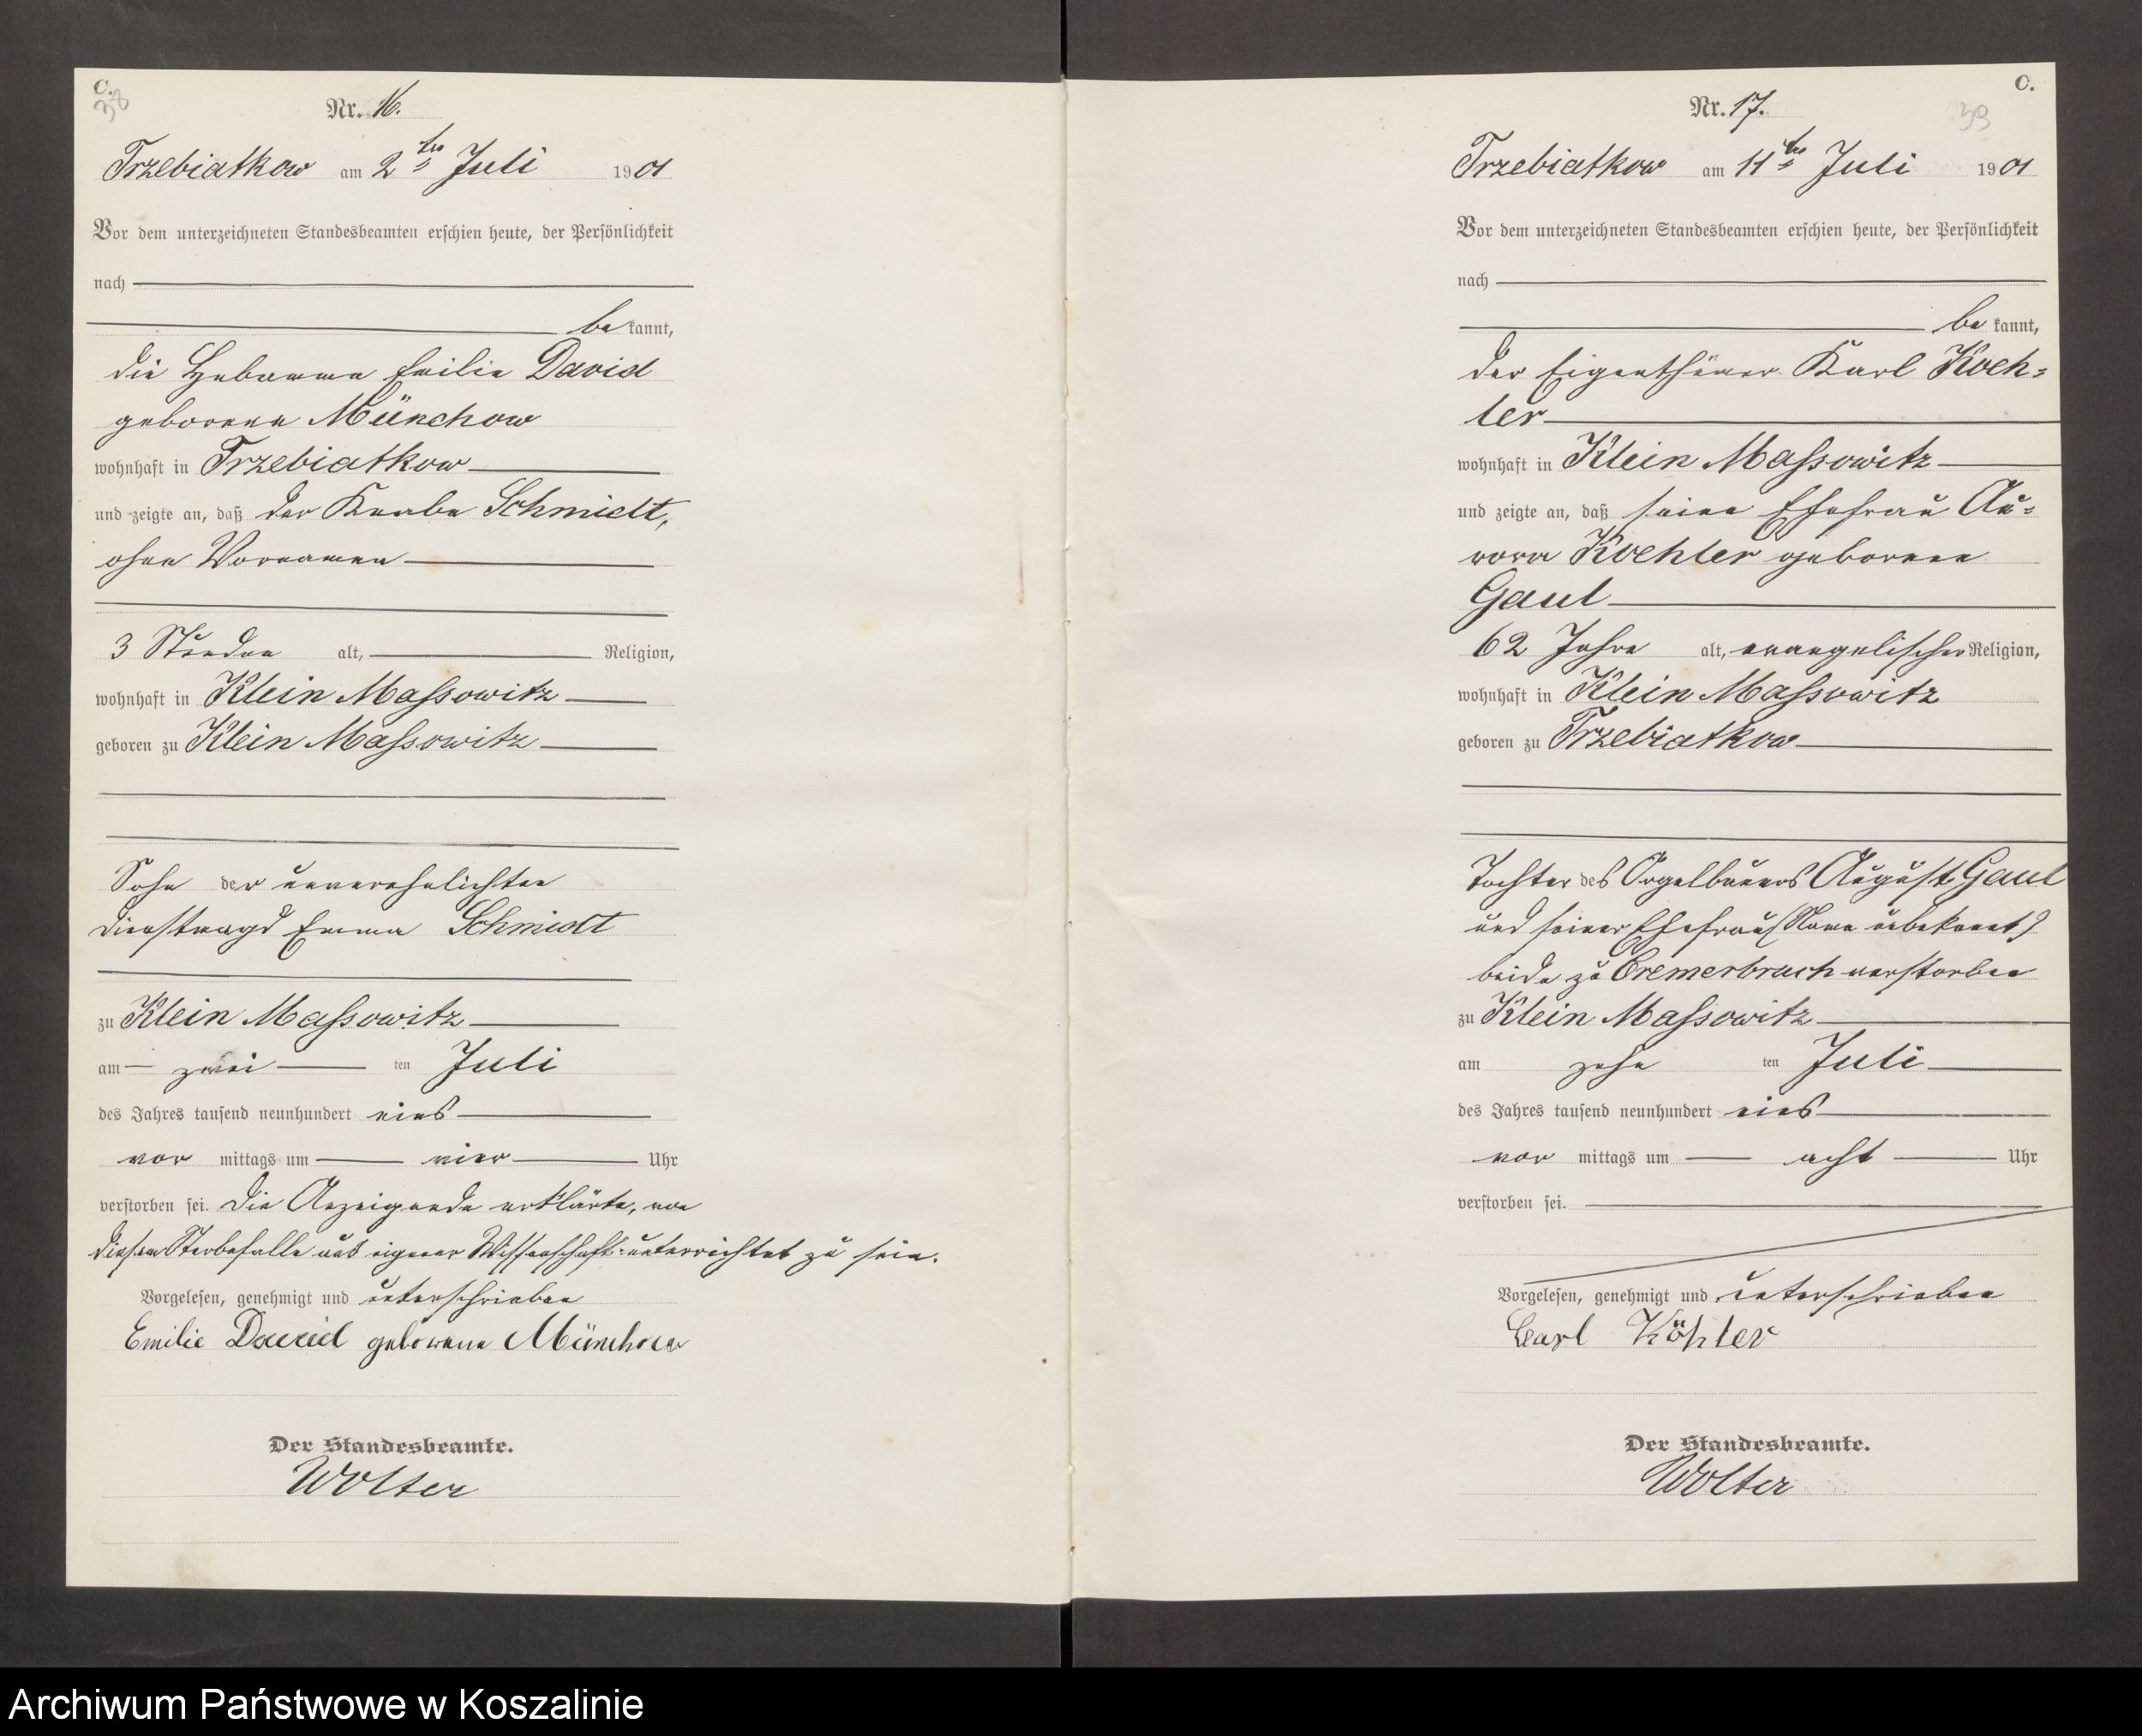 C.
38
Nr. 16.
Trzebiatkow am 2ten Juli 1901
Vor dem unterzeichneten Standesbeamten erschien heute, der Persönlichkeit
nach
be kannt,
die Hebamme Emilie David
geborene Münchow
wohnhaft in Trzebiatkow
und zeigte an, daß der Knabe Schmidt,
ohne Vornamen
3 Stunden alt, Religion,
wohnhaft in Klein Massowitz
geboren zu Klein Massowitz
Sohn der unverehelichten
Dienstmagd Emma Schmidt
zu Klein Massowitz
am zwei ten Juli
des Jahres tausend neunhundert eins
vor mittags um vier Uhr
verstorben sei. Die Anzeigende erklärte, von
diesem Sterbefalle aus eigener Wissenschaft unterrichtet zu sein.
Vorgelesen, genehmigt und unterschrieben
Emilie David geborene Münchow
Der Standesbeamte.
Wolter
C.
39
Nr. 17.
Trzebiatkow am 11ten Juli 1901
Vor dem unterzeichneten Standesbeamten erschien heute, der Persönlichkeit
nach
be kannt,
der Eigenthümer Karl Koeh=
ler
wohnhaft in Klein Massowitz
und zeigte an, daß seine Ehefrau Au=
rora Koehler geborene
Gaul
62 Jahre alt, evangelischer Religion,
wohnhaft in Klein Massowitz
geboren zu Trzebiatkow
Tochter des Orgelbauers August Gaul
und seiner Ehefrau (Name unbekannt)
beide zu Cremerbruch verstorben
zu Klein Massowitz
am zehn ten Juli
des Jahres tausend neunhundert eins
vor mittags um acht Uhr
verstorben sei.
Vorgelesen, genehmigt und unterschrieben
Carl Köhler
Der Standesbeamte.
Wolter
Archiwum Państwowe w Koszalinie